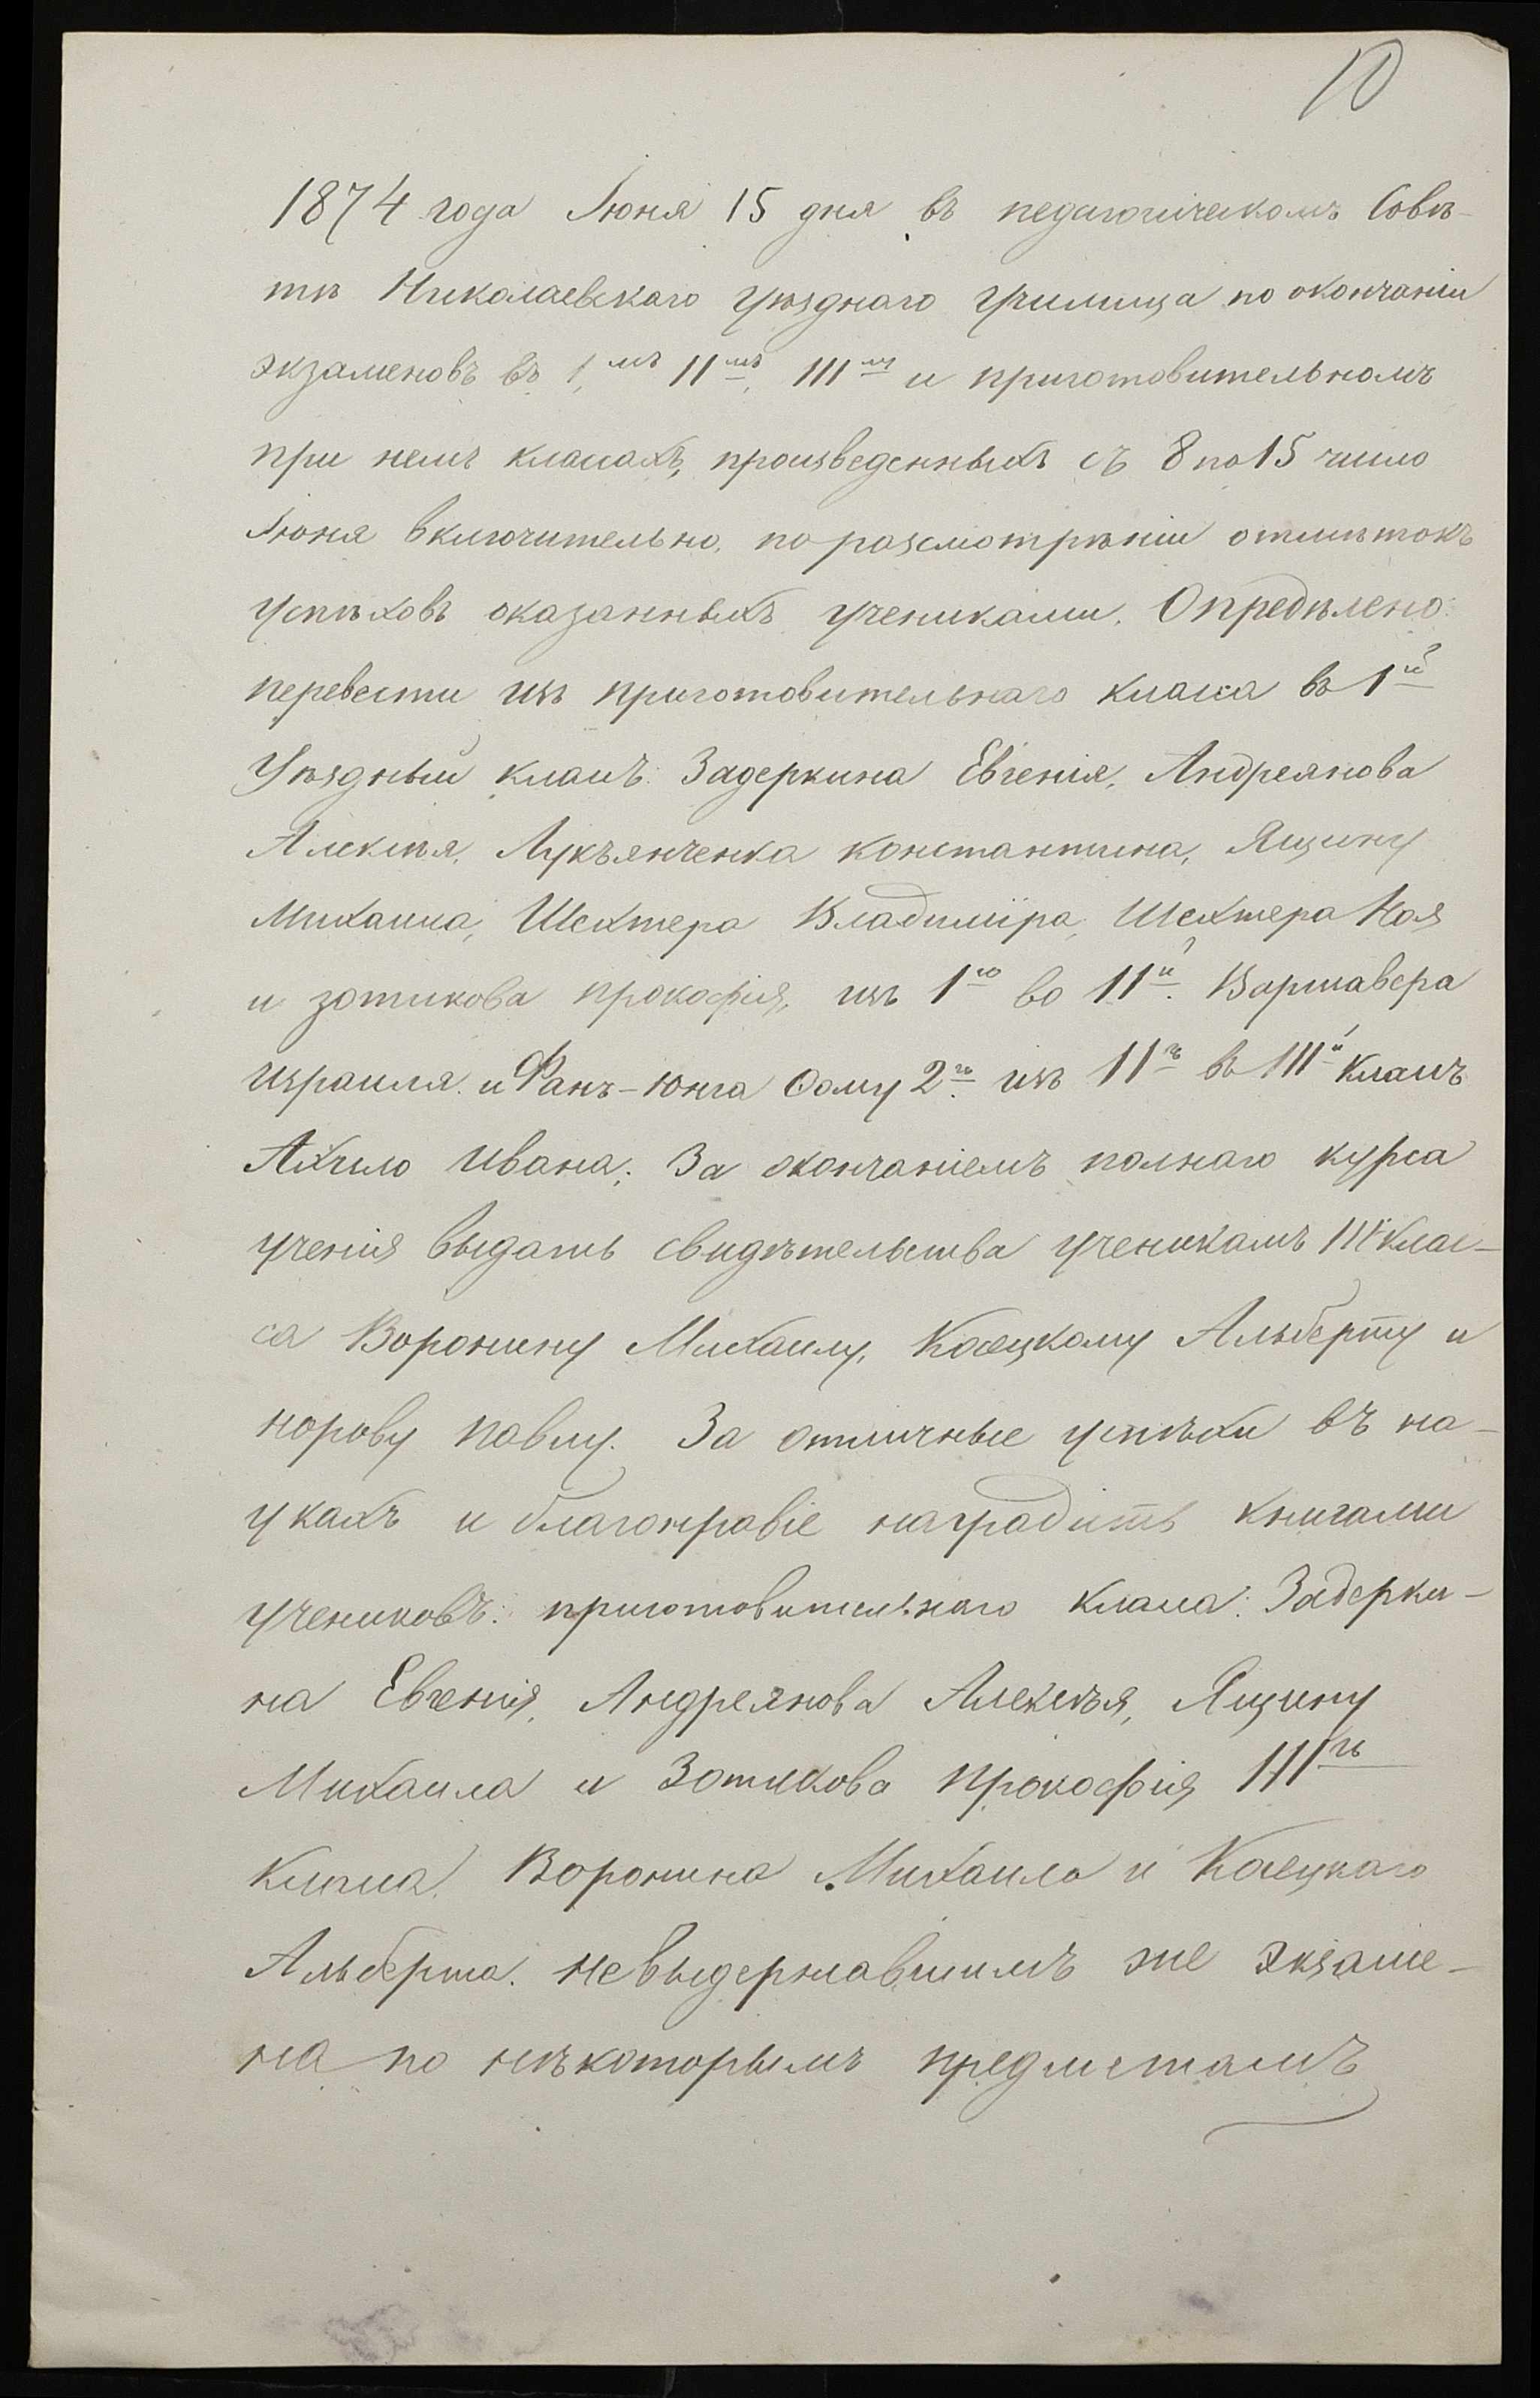 10
1874 года Іюня 15 дня въ педагогическомъ Совѣ-
тѣ Николаевскаго уѣзднаго училища по окончаніи
экзаменовъ въ I,мъ IIмъ, IIIмъ и приготовительномъ
при немъ классахъ, произведенныхъ съ 8 по 15 число
Іюня включительно, по разсмотрѣніи отмѣтокъ
успѣховъ оказанныхъ учениками. Опредѣлено:
перевести изъ приготовительнаго класса въ 1й
Уѣздный классъ: Задеркина Евгенія, Андреянова
Алексѣя, Лукъянченка константина, Ящину
Михаила, Шехтера Владиміра, Шехтера Ноя
и зотикова прокофія, изъ 1го во IIй. Варшавера
израиля. и Фанъ-Юнга Ѳому 2го. изъ IIго въ IIIй классъ
Ахчило ивана; За окончаніемъ полнаго курса
ученія выдать свидѣтельства ученикамъ III клас-
са Воронину Михаилу, Косецкому Альберту и
норову павлу. За отличные успѣхи въ на-
укахъ и благонравіе наградить книгами
учениковъ: приготовительнаго класса: Задерки-
на Евгенія, Андреянова Алексѣя, Ящину
Михаила и Зотикова прокофія, IIIго
класса, Воронина Михаила и Косецкаго
Альберта. невыдержавшимъ же экзаме-
на по нѣкоторымъ предметамъ